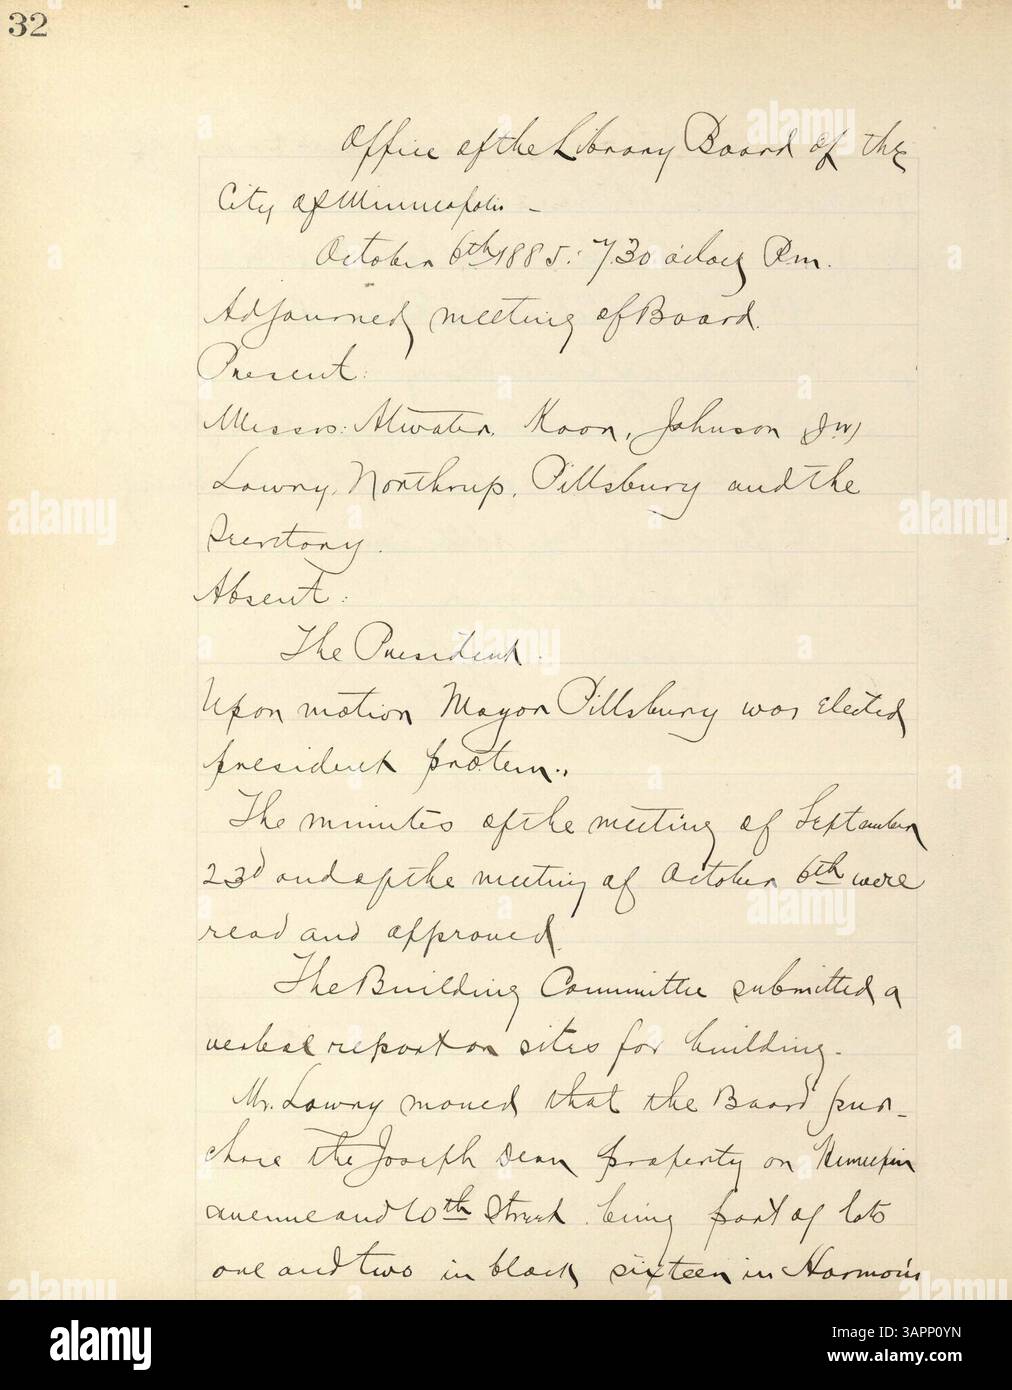 32
Office of the Library Board of the
City of Minneapolis -
October 6th 1885. 7.30 o'clock P.m.
Adjourned meeting of Board.
Present:
Messrs: Atwater, Koon, Johnson (J W)
Lowry, Northrup, Pillsbury and the
Secretary.
Absent:
The President.
Upon motion Mayor Pillsbury was elected
president protem.,
The minutes of the meeting of September
23d and of the meeting of October 6th were
read and approved.
The Building Committee submitted a
verbal report on sites for building.
Mr. Lowry moved that the Board pur-
chase the Joseph Dean property on Hennepin
avenue and 10th Street being part of lots
one and two in block sixteen in Harmon's
alamy
Image ID: 3APP0YN
www.alamy.com